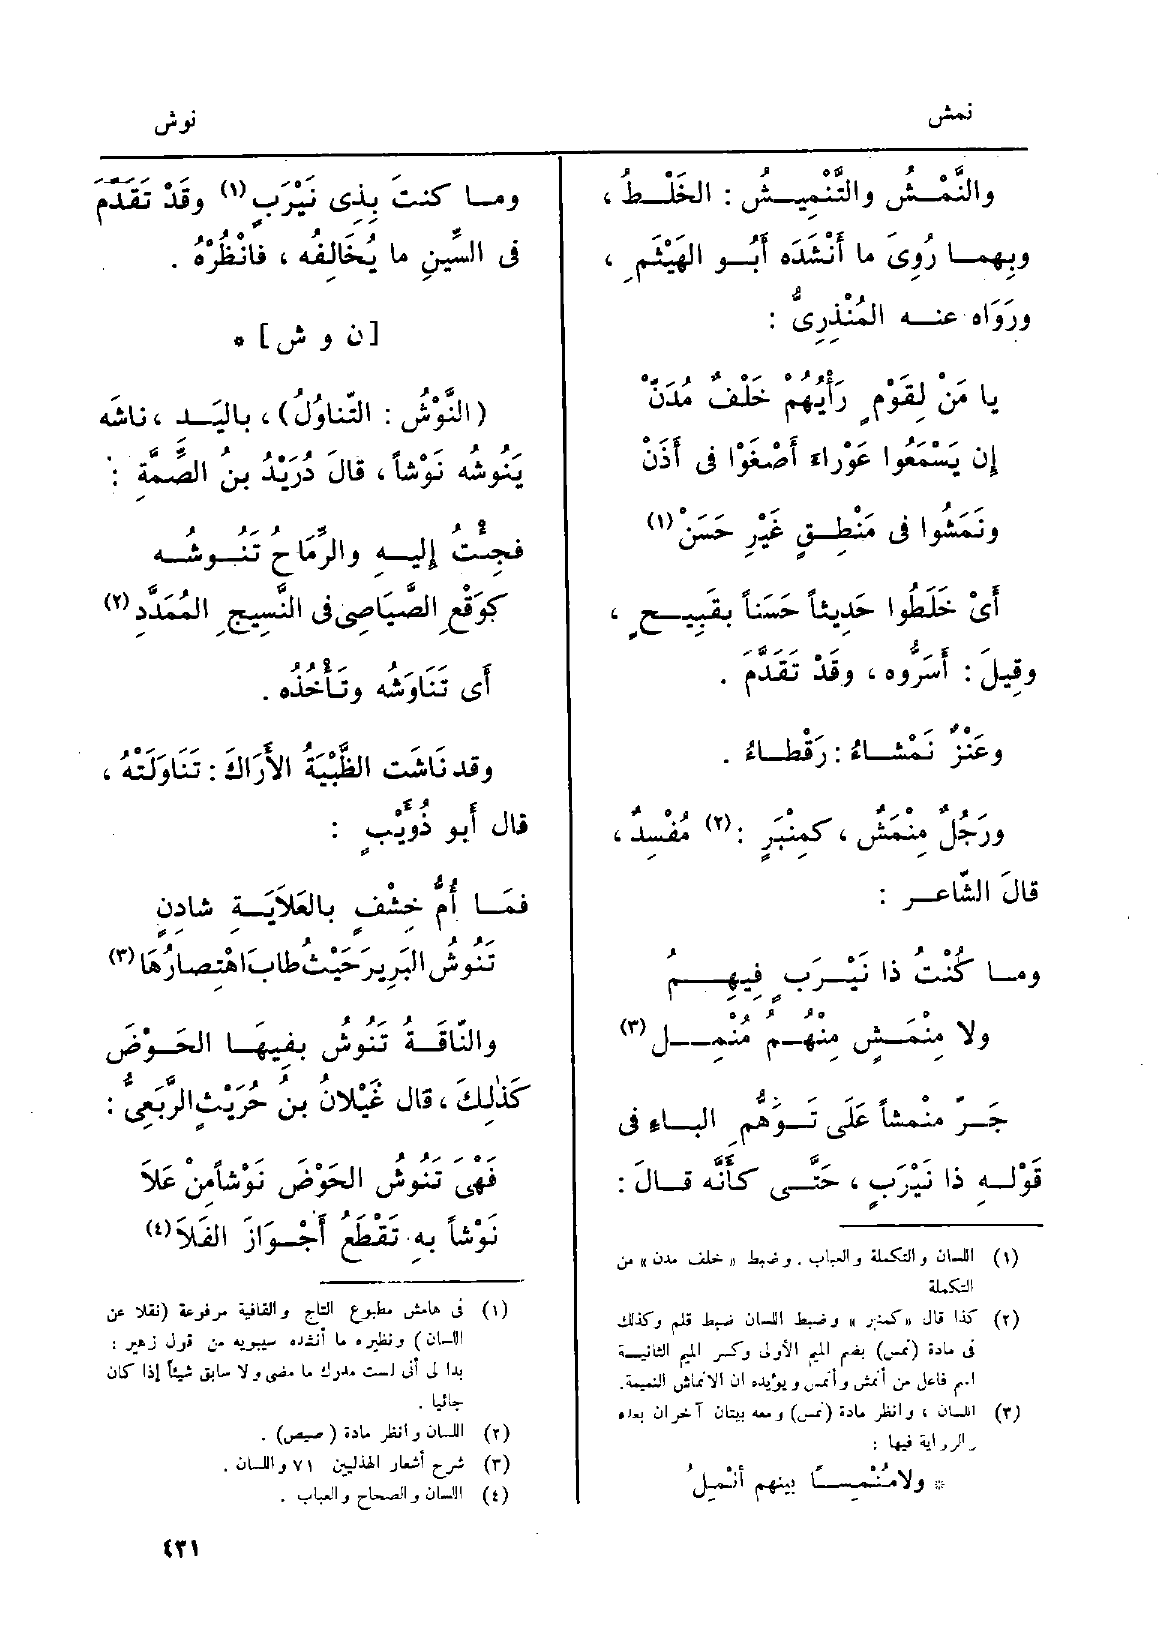 نمش
نوش
والنَّمْشُ والتَّنْمِيشُ : الخَلْطُ ،
وبِهِما رُوِىَ ما أَنْشَدَه أَبُو الهَيْثَمِ ،
ورَوَاه عنه المُنْذِرِىُّ :
يا مَنْ لِقَوْمٍ رَأْيُهُمْ خَلْفٌ مُدَنْ
إن يَسْمَعُوا عَوْراءَ أَصْغَوْا فى أَذَنْ
ونَمَشُوا فى مَنْطِقٍ غَيْرِ حَسَنْ (١)
أَىْ خَلَطُوا حَدِيثاً حَسَناً بقَبِيحٍ ،
وقِيلَ : أَسَرُّوه ، وقَدْ تَقَدَّمَ .
وعَنْزٌ نَمْشاءُ : رَقْطاءُ .
ورَجُلٌ مِنْمَشٌ ، كمِنْبَرٍ : (٢) مُفْسِدٌ ،
قالَ الشَّاعر :
وما كُنْتُ ذا نَيْرَبٍ فِيهِمُ
ولا مِنْمَشٍ مِنْهُمُ مُنْمِلِ (٣)
جَرّ مِنْمشاً عَلَى تَوَهُّمِ الباءِ فى
قَوْلِهِ ذا نَيْرَبٍ ، حَتَّى كأَنَّه قالَ :
(١) اللسان والتكملة والعباب . وضبط « خلف مدن » من
التكملة
(٢) كذا قال « كمنبر » وضبط اللسان ضبط قلم وكذلك
فى مادة (نمس) بضم الميم الأولى وكسر الميم الثانية
اسم فاعل من أنمش وأنمس ويؤيده ان الانماش النميمة.
(٣) اللسان ، وانظر مادة (نمس) ومعه بيتان آخران بعده
والرواية فيها :
* ولا مُنْمِساً بينهم أنْمِلُ
وما كنتَ بِذِى نَيْرَبٍ (١) وقَدْ تَقَدَّمَ
فى السِّينِ ما يُخَالِفُه ، فانْظُرْهُ .
[ن و ش] *
(النَّوْشُ : التَّناوُلُ) ، باليَد ، ناشَه
يَنُوشُه نَوْشاً ، قالَ دُرَيْدُ بنُ الصِّمَّةِ :
فجِئْتُ إليهِ والرِّمَاحُ تَنُوشُه
كوَقْعِ الصَّيَاصِى فى النَّسِيجِ المُمَدَّدِ (٢)
أَى تَنَاوَشُه وتَأْخُذُه .
وقد نَاشَت الظَّبْيَةُ الأَرَاكَ : تَنَاوَلَتْهُ ،
قال أَبو ذُوَيْبٍ :
فمَا أُمُّ خِشْفٍ بالعَلاَيَةِ شادِنٍ
تَنُوشُ البَرِيرَ حَيْثُ طابَ اهْتِصارُهَا (٣)
والنَّاقَةُ تَنُوشُ بفِيهَا الحَوْضَ
كَذٰلِكَ ، قال غَيْلانُ بنُ حُرَيْثٍ الرَّبَعِىُّ :
فَهْىَ تَنُوشُ الحَوْضَ نَوْشاً مِنْ عَلاَ
نَوْشاً بهِ تَقْطَعُ أَجْوَازَ الفَلاَ (٤)
(١) فى هامش مطبوع التاج والقافية مرفوعة (نقلا عن
اللسان) ونظيره ما أنشده سيبويه من قول زهير :
بدا لى أنى لست مدرك ما مضى ولا سابق شيئاً إذا كان
جائيا .
(٢) اللسان وانظر مادة (صيص) .
(٣) شرح أشعار الهذليين ٧١ واللسان .
(٤) اللسان والصحاح والعباب .
٤٣١